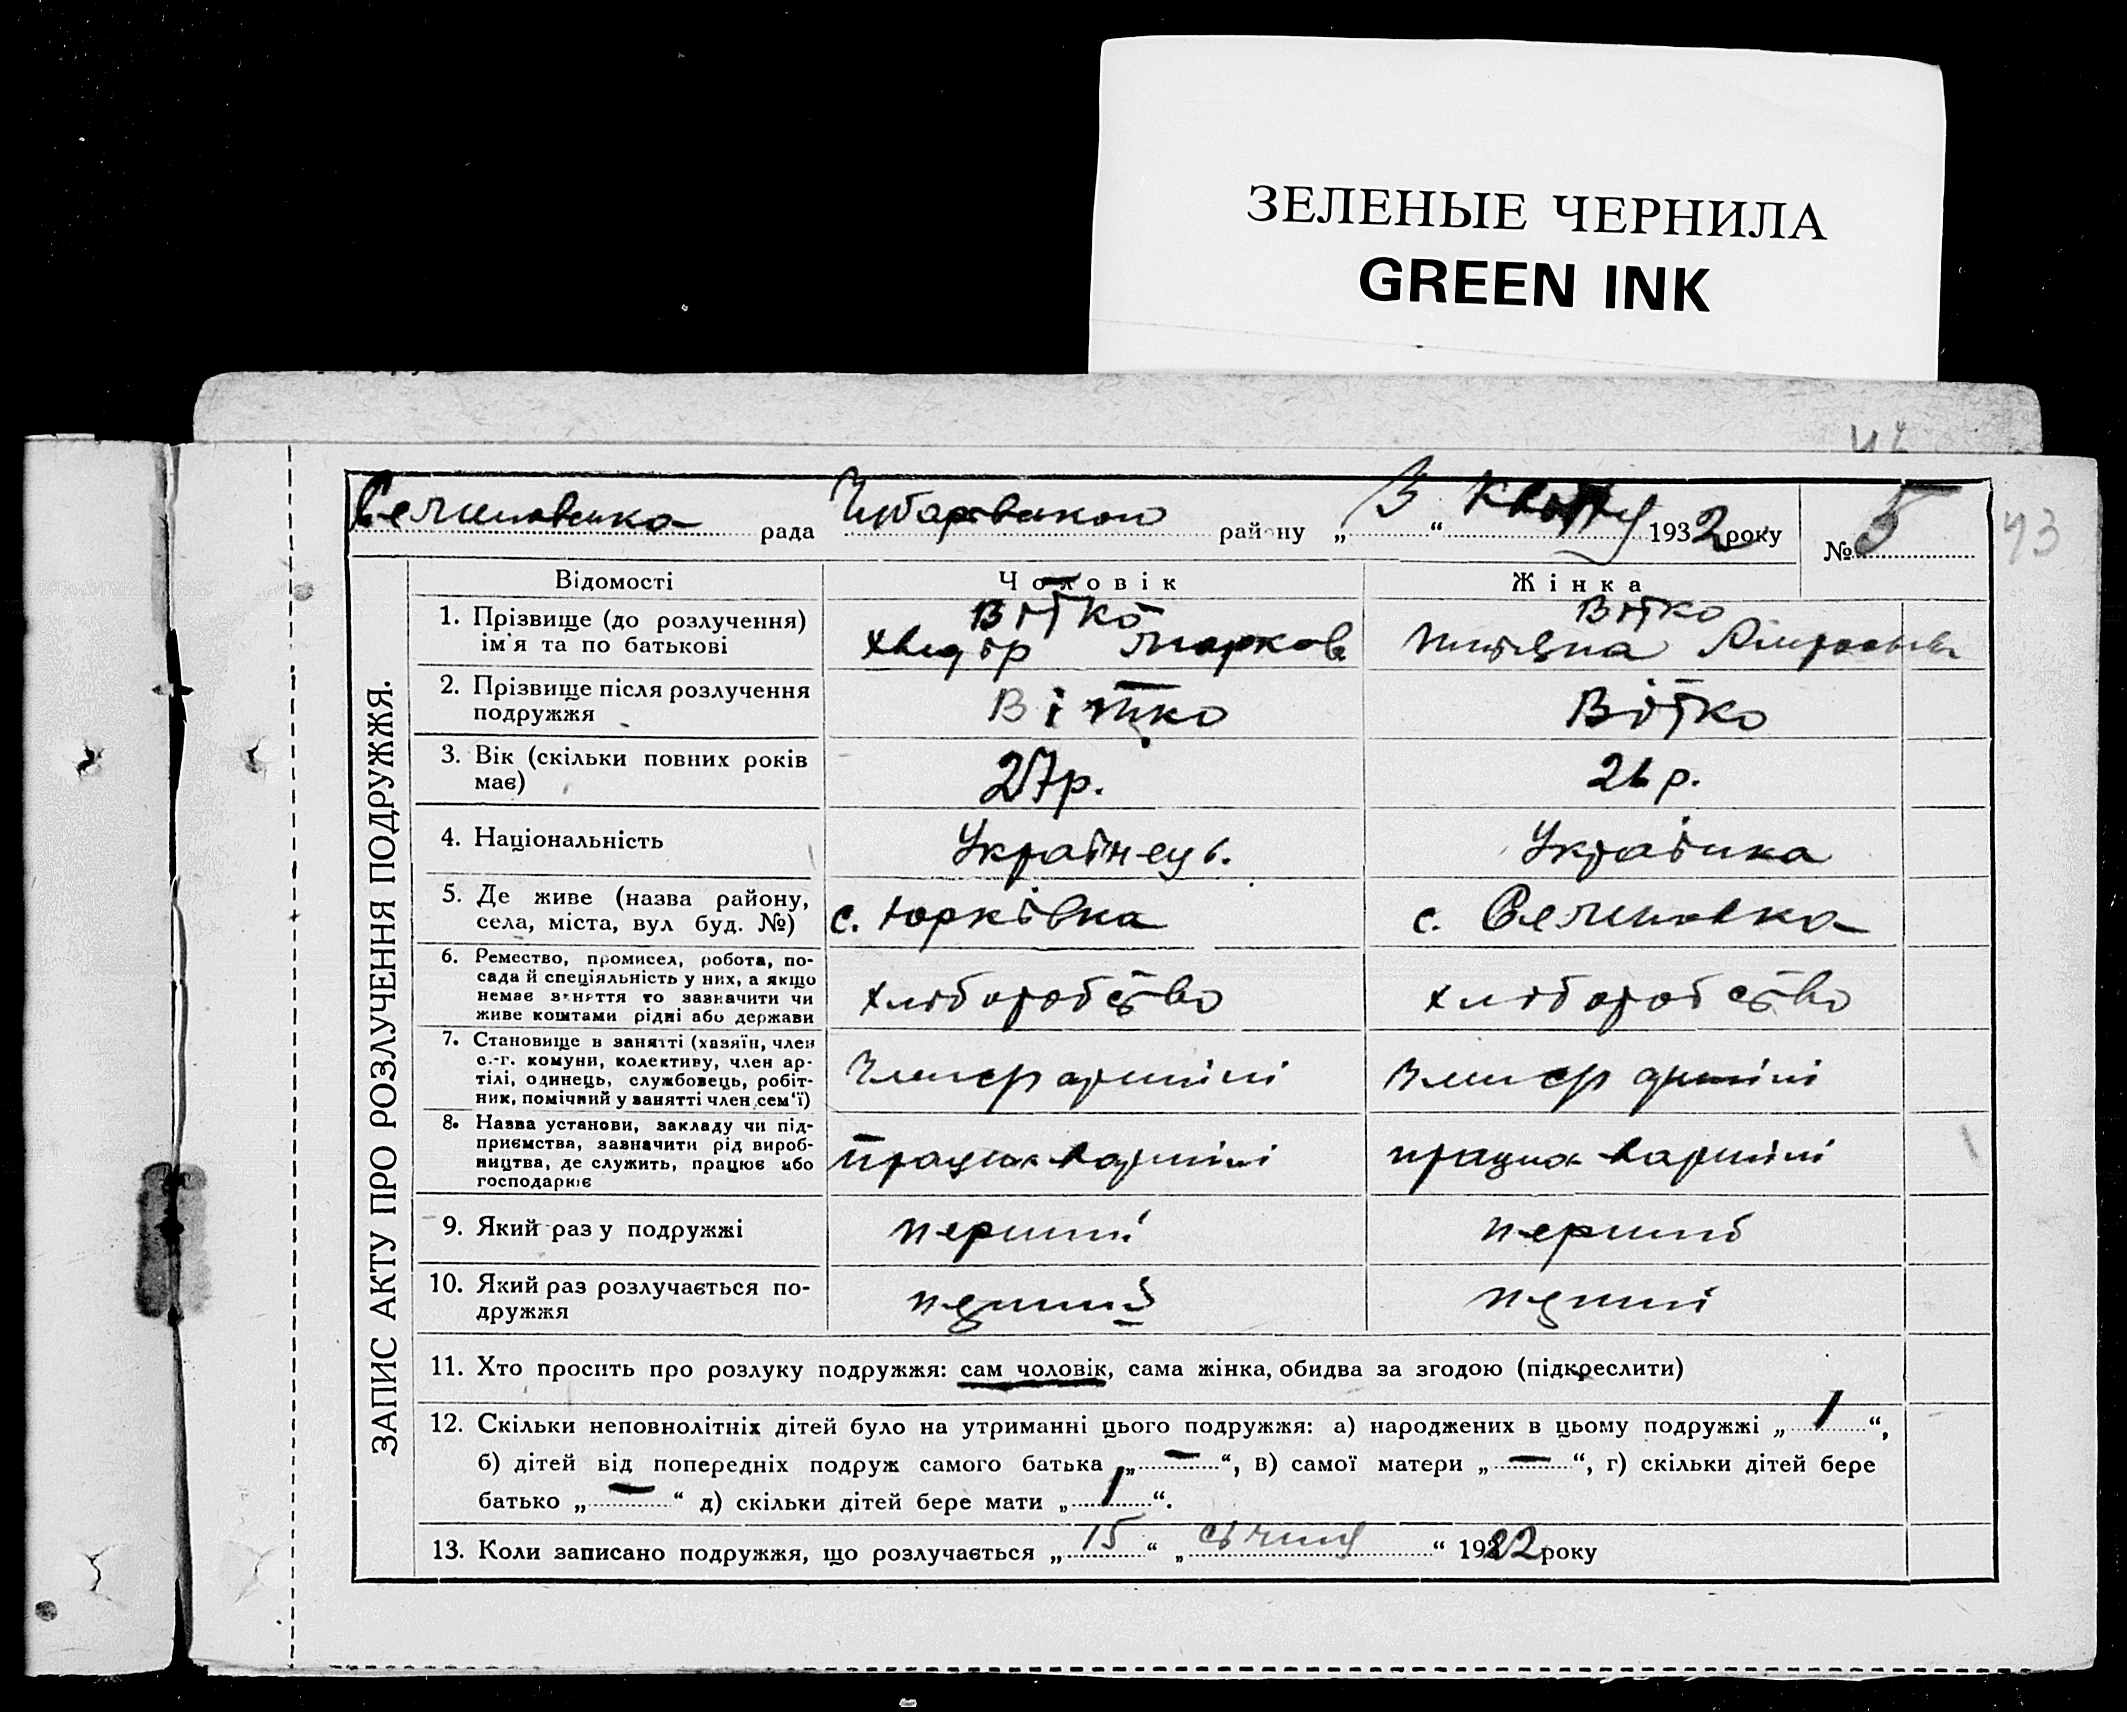 ЗЕЛЕНЫЕ ЧЕРНИЛА
GREEN INK
рада району „ 3 “ 1932 року № 5
43
ЗАПИС АКТУ ПРО РОЗЛУЧЕННЯ ПОДРУЖЖЯ.
Відомості Чоловік Жінка
1. Прізвище (до розлучення) Вітко Вітко
ім'я та по батькові Хведір Марков
2. Прізвище після розлучення Вітко Вітко
подружжя
3. Вік (скільки повних років 27р. 26р.
має)
4. Національність Українець. Українка
5. Де живе (назва району, с. Юрківка с.
села, міста, вул буд. №)
6. Ремество, промисел, робота, по-
сада й спеціяльність у них, а якщо хліборобство хліборобство
немає заняття то зазначити чи
живе коштами рідні або держави
7. Становище в занятті (хазяїн, член
с.-г. комуни, колективу, член ар- Член артілі Член артілі
тілі, одинець, службовець, робіт-
ник, помічний у занятті член сем'ї)
8. Назва установи, закладу чи під-
приємства, зазначити рід вироб- працює в артілі працює в артілі
ництва, де служить, працює або
господарює
9. Який раз у подружжі перший перший
10. Який раз розлучається по-
дружжя
11. Хто просить про розлуку подружжя: сам чоловік, сама жінка, обидва за згодою (підкреслити)
12. Скільки неповнолітніх дітей було на утриманні цього подружжя: а) народжених в цьому подружжі „ 1 “,
б) дітей від попередніх подруж самого батька „ — “, в) самої матери „ — “, г) скільки дітей бере
батько „ — “ д) скільки дітей бере мати „ 1 “.
13. Коли записано подружжя, що розлучається „ 15 “ „ січня “ року